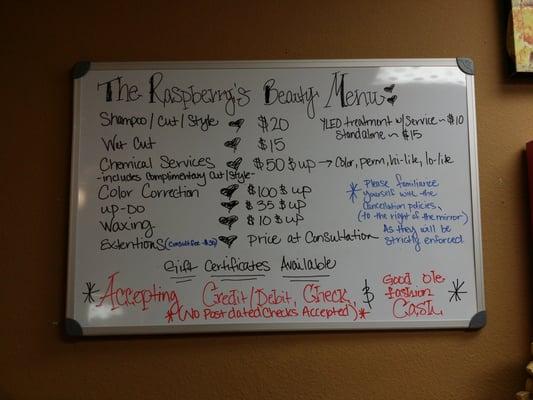 The Raspberry's Beauty Menu
Shampoo/Cut/Style $20
YLED treatment w/Service ~ $10
Standalone ~ $15
Wet Cut $15
Chemical Services $50 $ up → Color, perm, hi-lite, lo-lite
-includes complimentary cut/style-
Color Correction $100 $ up
up-Do $35 $ up
Waxing $10 $ up
Extentions (consult fee $35) price at Consultation
* Please familiarize
yourself with the
cancellation policies,
(to the right of the mirror)
As they will be
strictly enforced.
Gift Certificates Available
* Accepting Credit/Debit, Check, $ Good ole fashion Cash *
*(No Post dated Checks Accepted)*